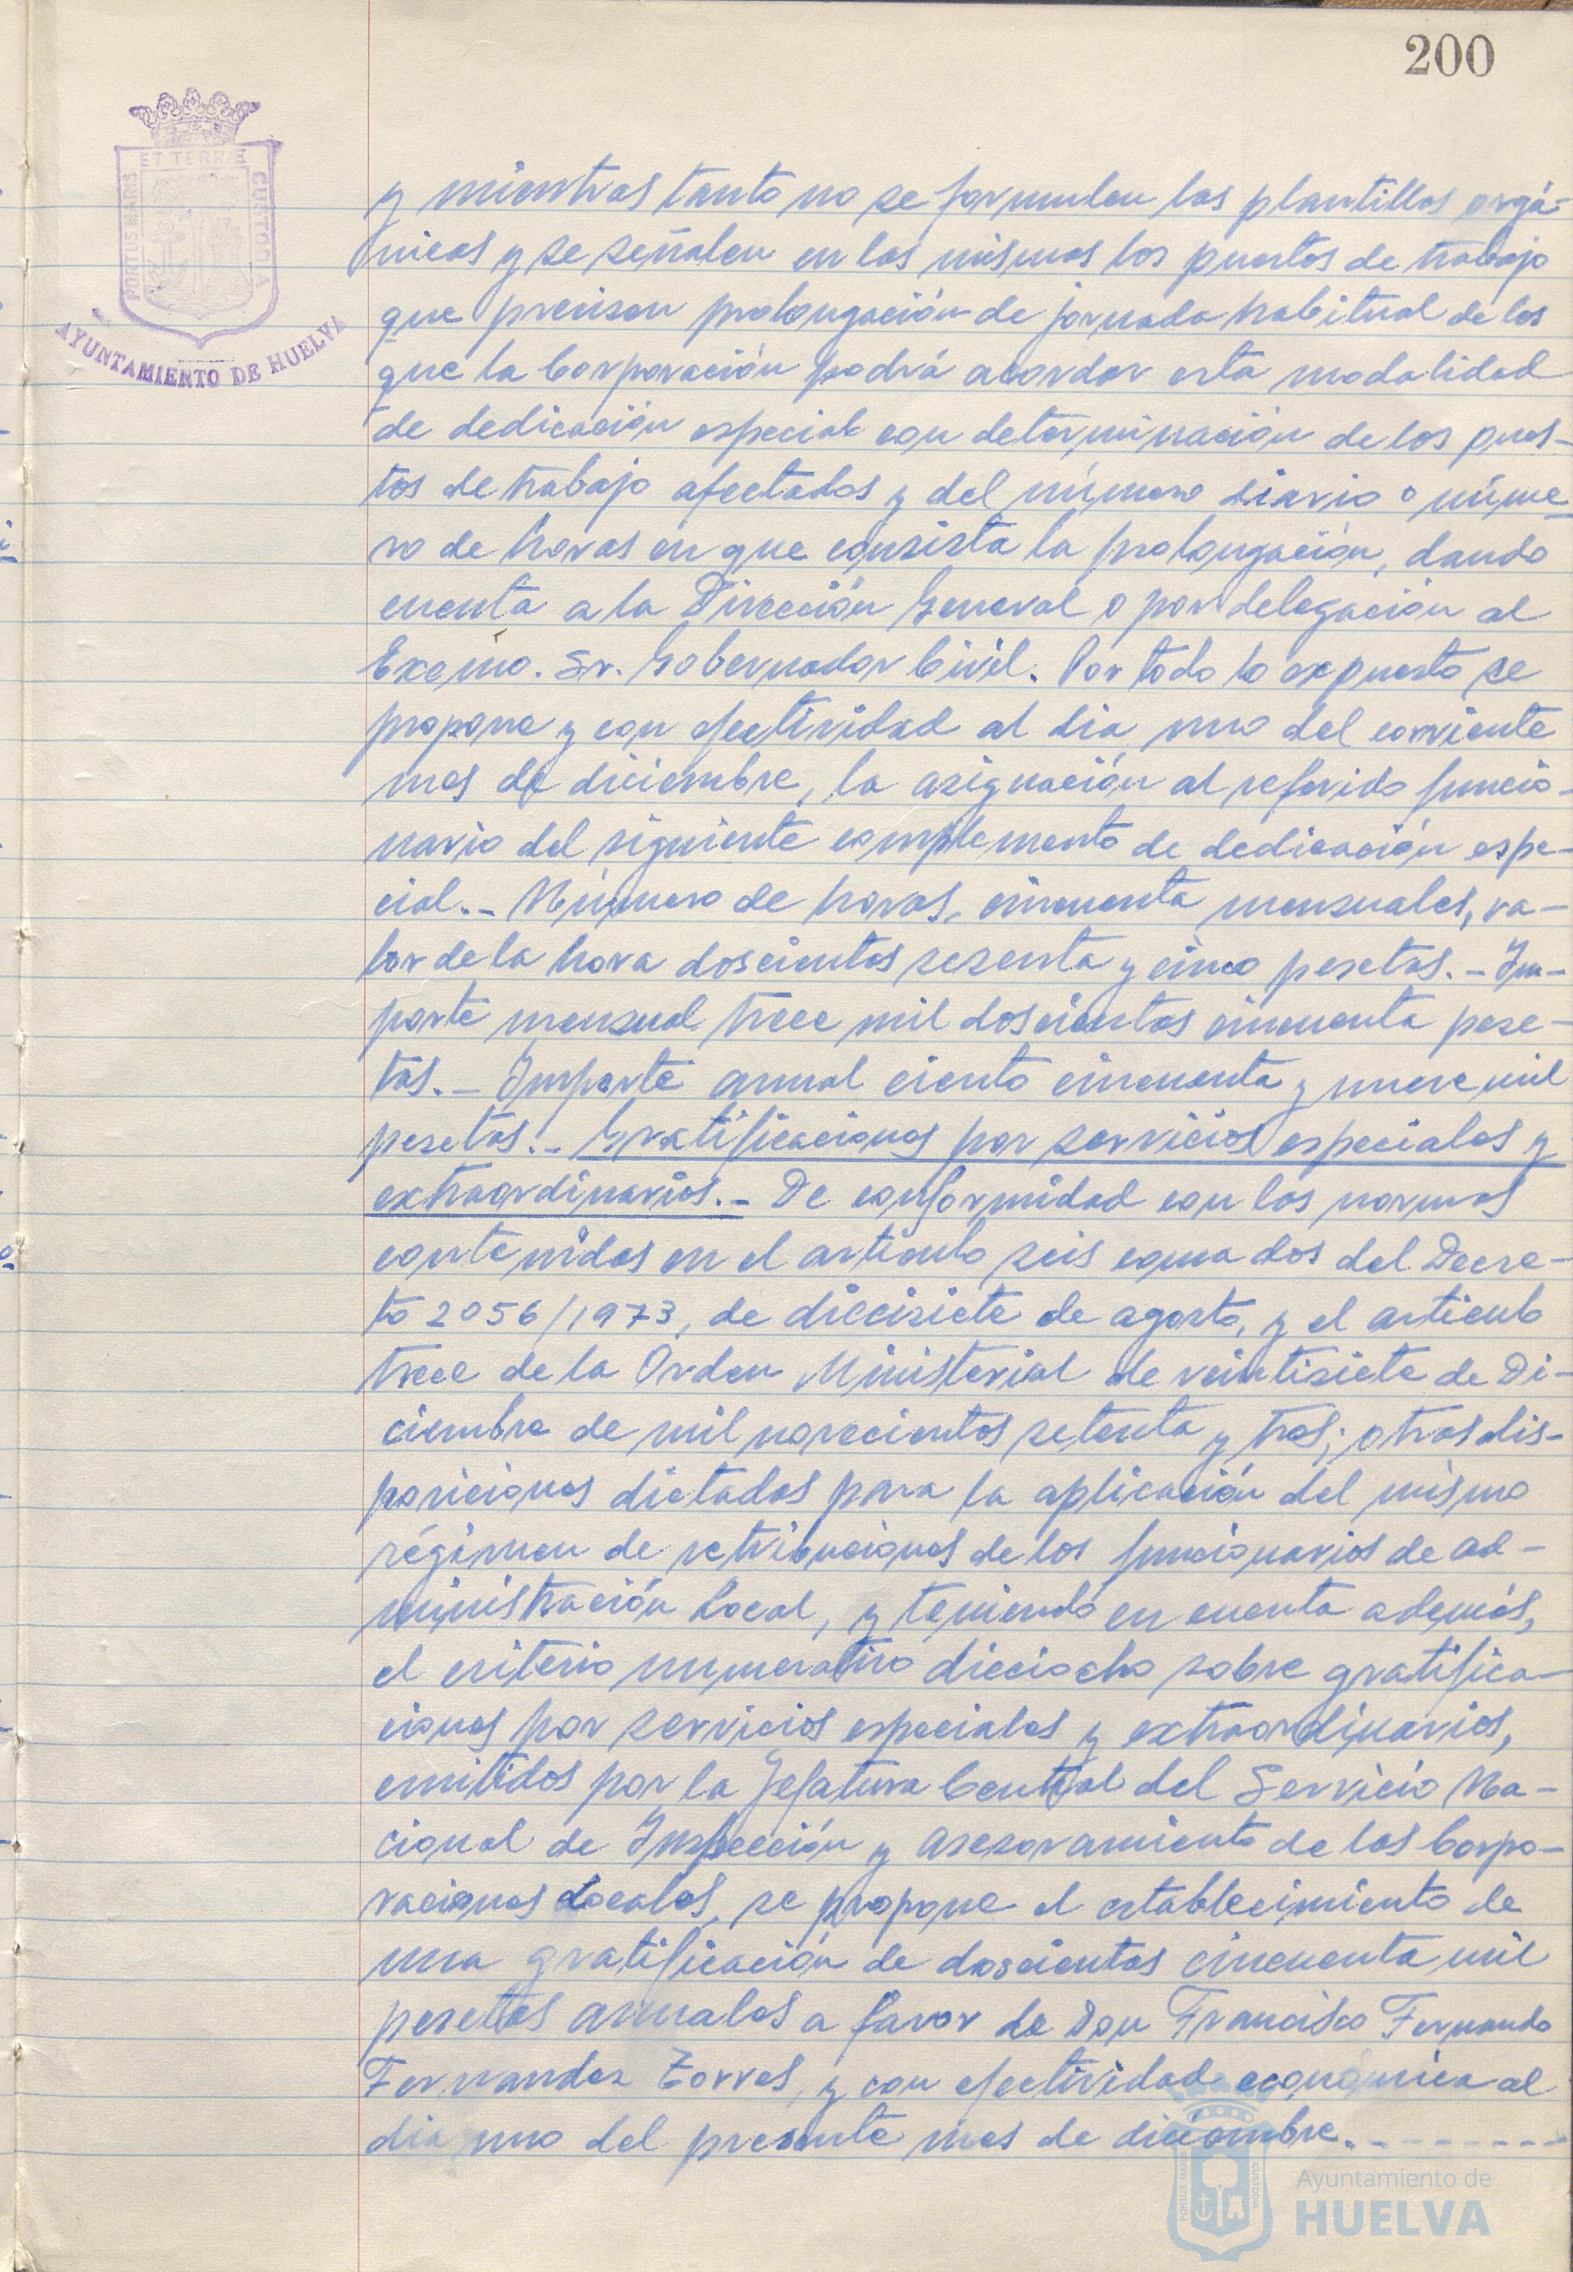 200
ET TERRÆ
PORTUS MARIS
CUSTODIA
AYUNTAMIENTO DE HUELVA
y mientras tanto no se formulen las plantillas orgá-
nicas y se señalen en las mismas los puestos de trabajo
que precisen prolongación de jornada habitual de los
que la Corporación podrá acordar esta modalidad
de dedicación especial con determinación de los pues-
tos de trabajo afectados y del número diario o núme-
ro de horas en que consista la prolongación, dando
cuenta a la Dirección General o por delegación al
Excmo. Sr. Gobernador Civil. Por todo lo expuesto se
propone y con efectividad al dia uno del corriente
mes de diciembre, la asignación al referido funcio-
nario del siguiente complemento de dedicación espe-
cial.- Número de horas, cincuenta mensuales, va-
lor de la hora doscientas sesenta y cinco pesetas.- Im-
porte mensual trece mil doscientas cincuenta pese-
tas.- Importe anual ciento cincuenta y nueve mil
pesetas.- Gratificaciones por servicios especiales y
extraordinarios.- De conformidad con las normas
contenidas en el articulo seis coma dos del Decre-
to 2056/1973, de diecisiete de agosto, y el articulo
trece de la Orden Ministerial de veintisiete de Di-
ciembre de mil novecientos setenta y tres; otras dis-
posiciones dictadas para la aplicación del mismo
régimen de retribuciones de los funcionarios de ad-
ministración Local, y teniendo en cuenta además,
el criterio numerativo dieciocho sobre gratifica-
ciones por servicios especiales y extraordinarios,
emitidos por la Jefatura Central del Servicio Na-
cional de Inspección y asesoramiento de las Corpo-
raciones Locales, se propone el establecimiento de
una gratificación de doscientas cincuenta mil
pesetas anuales a favor de Don Francisco Fernando
Fernandez Torres, y con efectividad económica al
dia uno del presente mes de diciembre.- - - - - - -
Ayuntamiento de
HUELVA